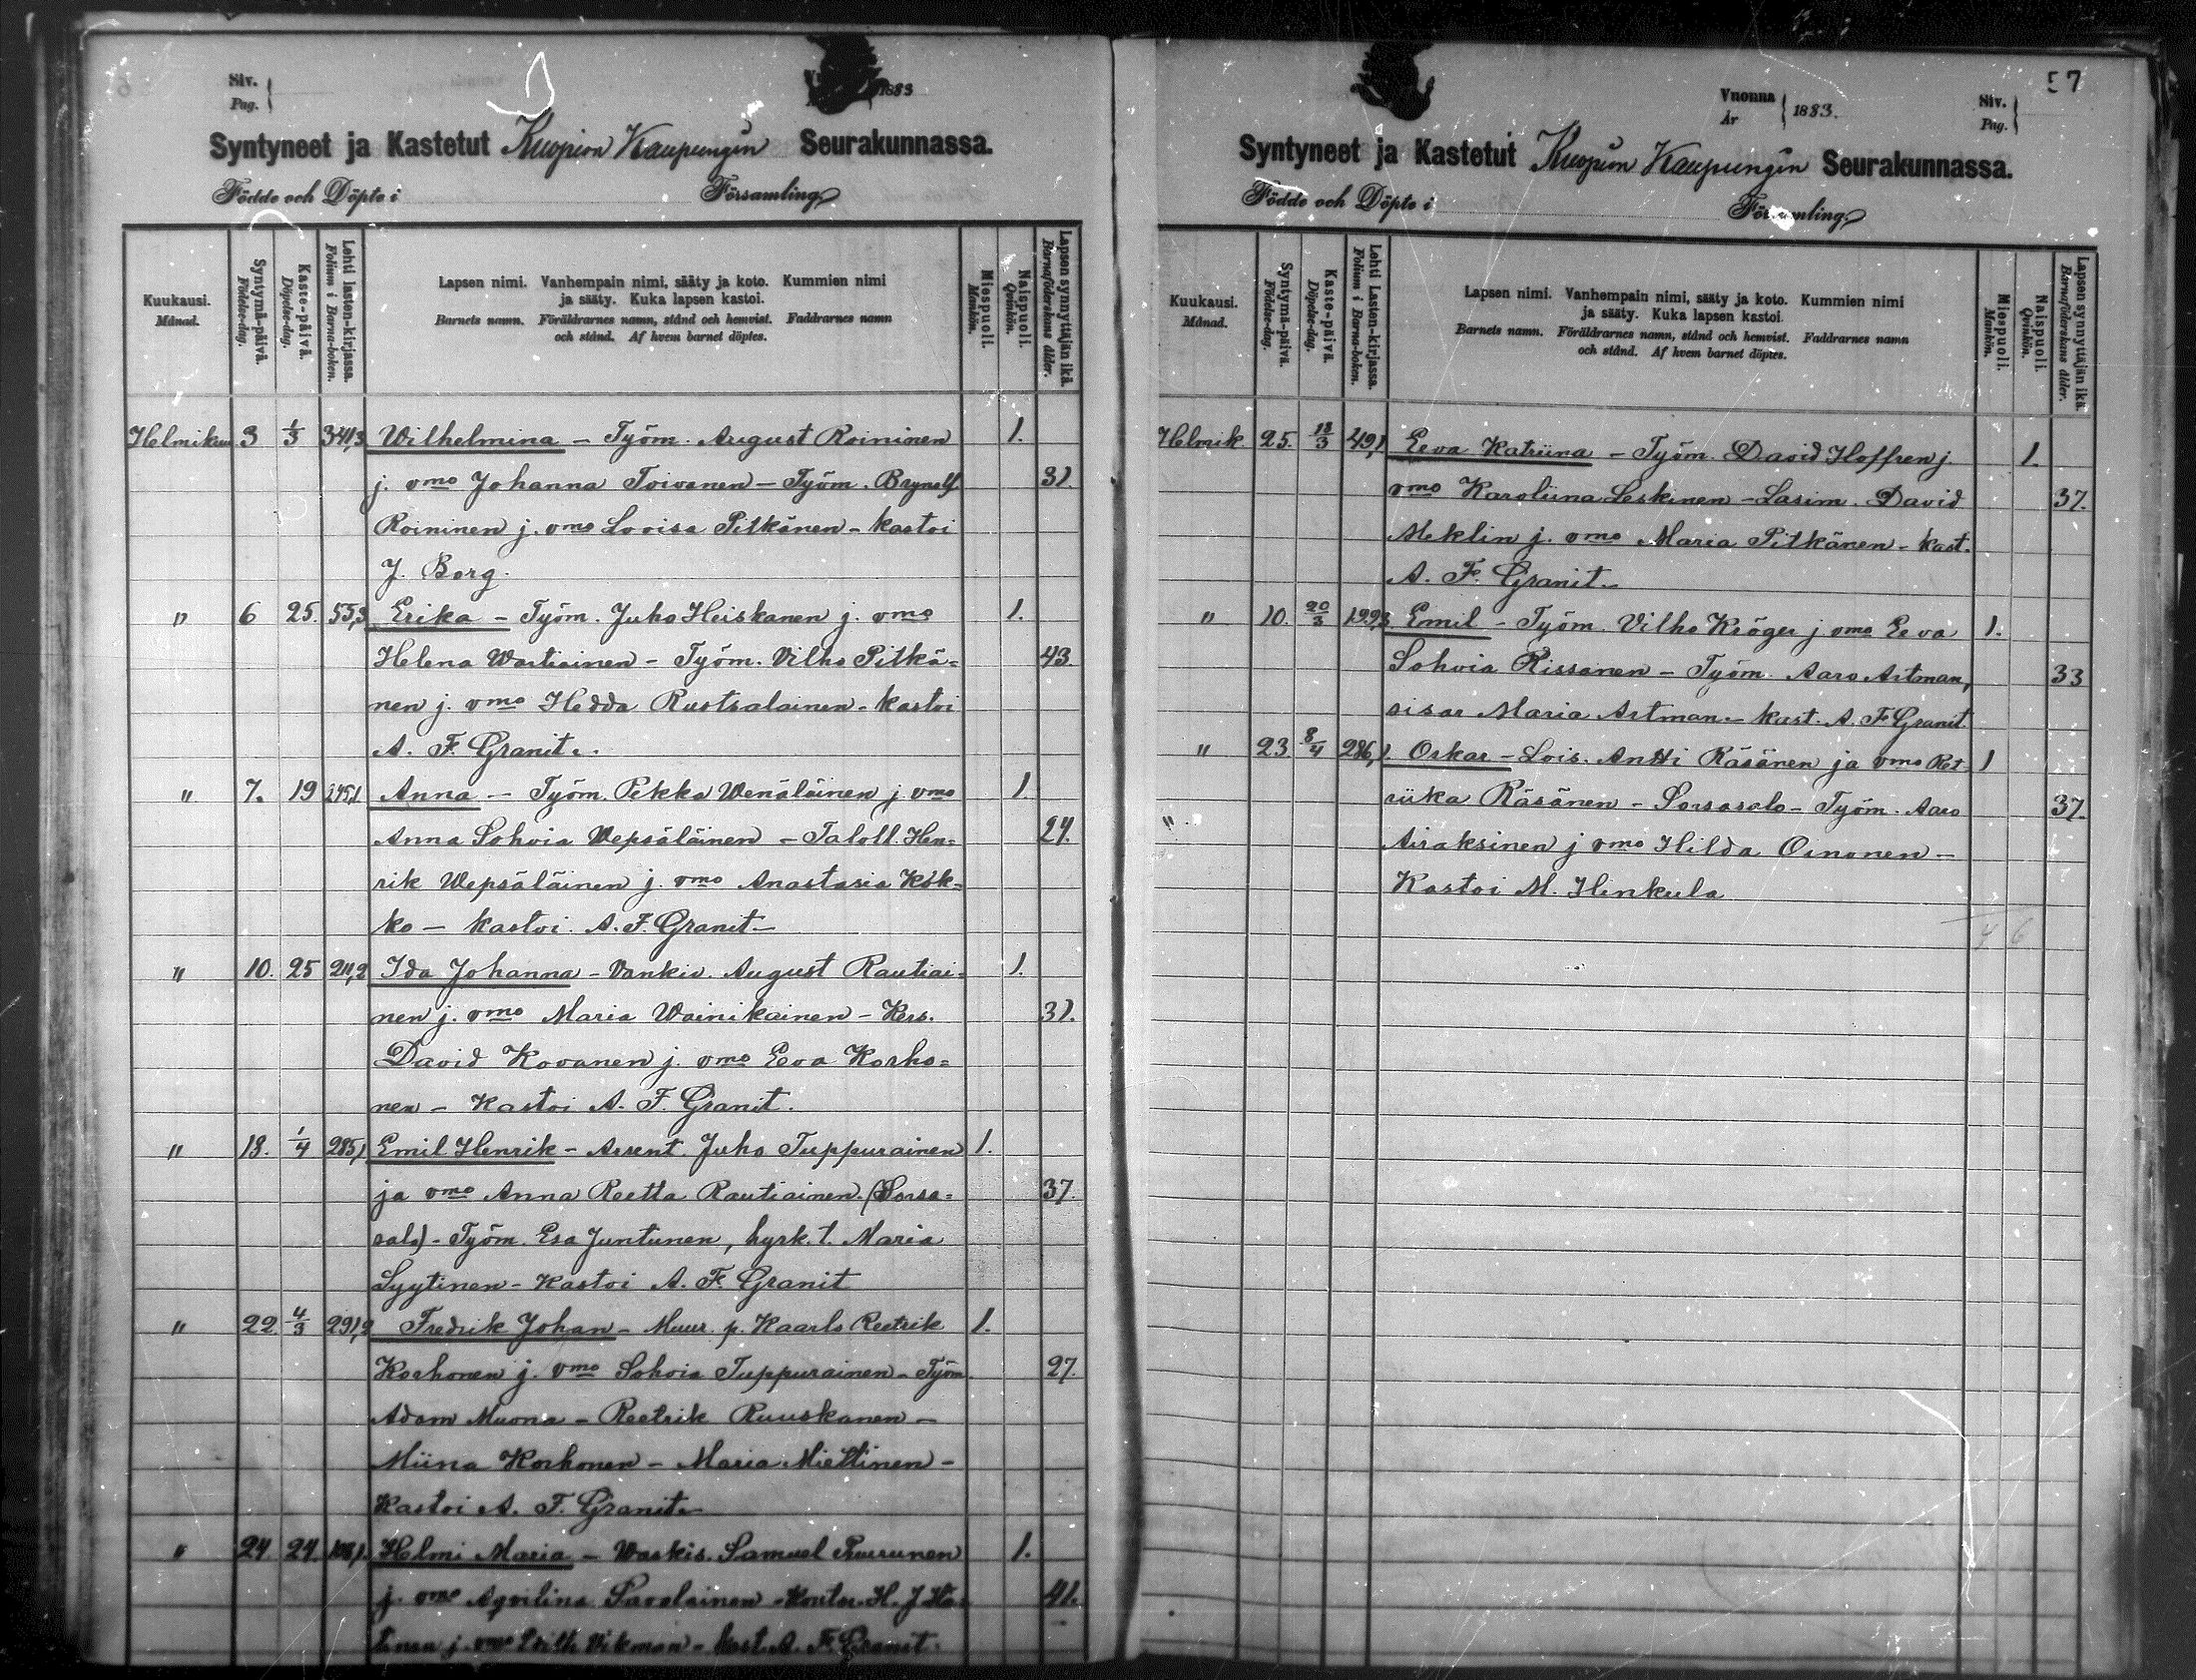 Siv.
Pag.
1883
Syntyneet ja Kastetut Kuopion Kaupungin Seurakunnassa.
Födde och Döpte i Församling
Kuukausi.
Månad.
Syntymä-päivä.
Födelse-dag.
Kaste-päivä.
Döpelse-dag.
Lehti lasten-kirjassa.
Folium i Barna-boken.
Lapsen nimi. Vanhempain nimi, sääty ja koto. Kummien nimi
ja sääty. Kuka lapsen kastoi.
Barnets namn. Föräldrarnes namn, stånd och hemvist. Faddrarnes namn
och stånd. Af hvem barnet döptes.
Miespuoli.
Mankön.
Naispuoli.
Qvinkön.
Lapsen synnyttäjän ikä.
Barnaföderskans ålder.
Helmikuu 3 1/3 341,3 Wilhelmina - Työm. August Roininen 1.
j. vmo Johanna Toivanen - Työm. Brynolf 31.
Roininen j. vmo Lovisa Pitkänen - kastoi
J. Borg.
" 6 25. 53,3 Erika - Työm. Juho Heiskanen j. vmo 1.
Helena Wartiainen - Työm. Vilho Pitkä= 43.
nen j. vmo Hedda Rustsalainen - kastoi
A. F. Granit.
" 7. 19 245,1 Anna - Työm. Pekka Wenäläinen j. vmo 1.
Anna Sohvia Wepsäläinen - Taloll. Hen= 24.
rik Wepsäläinen j. vmo Anastasia Kok=
ko - kastoi A. F. Granit -
" 10. 25 211,2 Ida Johanna - Vankiv. August Rautiai= 1.
nen j. vmo Maria Wainikainen - Kers. 31.
David Kovanen j. vmo Eeva Korho=
nen - Kastoi A. F. Granit.
" 13. 1/4 285,1 Emil Henrik - Arrent. Juho Tuppurainen 1.
ja vmo Anna Reetta Rautiainen. (Sorsa= 37.
salo) - Työm. Esa Juntunen, hyrk. t. Maria
Lyytinen - Kastoi A. F. Granit
" 22. 4/3 291,2 Fredrik Johan - Muur. p. Kaarlo Reetrik 1.
Korhonen j. vmo Sohvia Tuppurainen - Työm. 27.
Adam Muona - Reetrik Ruuskanen -
Miina Korhonen - Maria Miettinen -
Kastoi A. F. Granit -
" 24. 24. Helmi Maria - Waskis. Samuel Puurunen 1.
j. vmo Aqvilina Savolainen - H. J. 41.
j. vmo Vikman - kast. A. F. Granit.
57
Vuonna
År
1883.
Siv.
Pag.
Syntyneet ja Kastetut Kuopion Kaupungin Seurakunnassa.
Födde och Döpte i Församling
Kuukausi.
Månad.
Syntymä-päivä.
Födelse-dag.
Kaste-päivä.
Döpelse-dag.
Lehti Lasten-kirjassa.
Folium i Barna-boken.
Lapsen nimi. Vanhempain nimi, sääty ja koto. Kummien nimi
ja sääty. Kuka lapsen kastoi.
Barnets namn. Föräldrarnes namn, stånd och hemvist. Faddrarnes namn
och stånd. Af hvem barnet döptes.
Miespuoli.
Mankön.
Naispuoli.
Qvinkön.
Lapsen synnyttäjän ikä.
Barnaföderskans ålder.
Helmik. 25. 18/3 49,1 Eeva Katriina - Työm. David Hoffren j. 1.
vmo Karoliina Leskinen - Lasim. David 37.
Meklin j. vmo Maria Pitkänen - kast.
A. F. Granit -
" 10. 20/3 199,3 Emil - Työm. Vilho Kröger j vmo Eeva 1.
Sohvia Rissanen - Työm. Aaro Artman, 33
sisar Maria Artman - kast. A. F. Granit.
" 23 8/4 286,1. Oskar - Lois. Antti Räsänen ja vmo Ret 1
riika Räsänen - Sorsasalo - Työm. Aaro 37.
" Airaksinen j vmo Hilda Oinonen -
Kastoi M. Hinkula
7 6